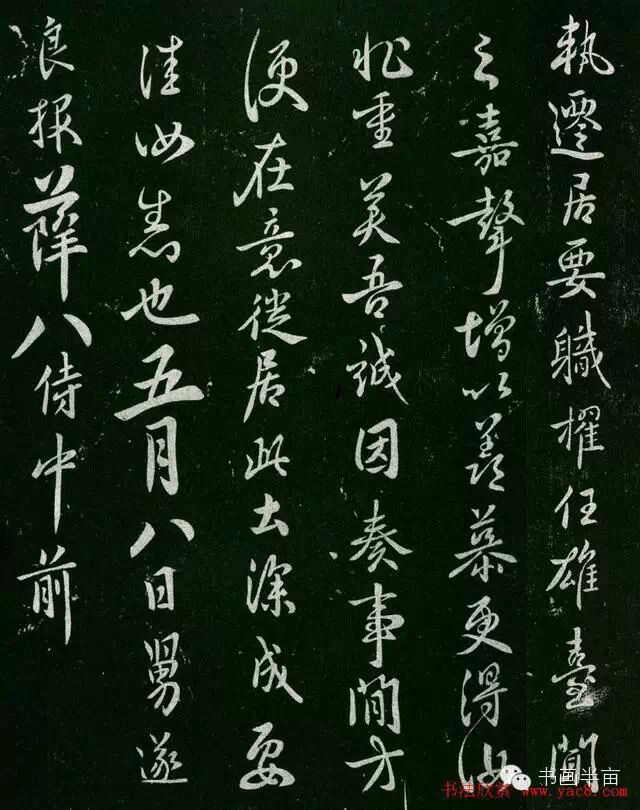 執遷居要職擢任雄臺聞
之嘉聲增以羨慕更得汝
兆重美吾誠因奏事間方
便在意從居此土深成要
佳汝悉也五月八日舅遂
良報薛八侍中前
书画半亩
书法欣赏 www.yac8.com